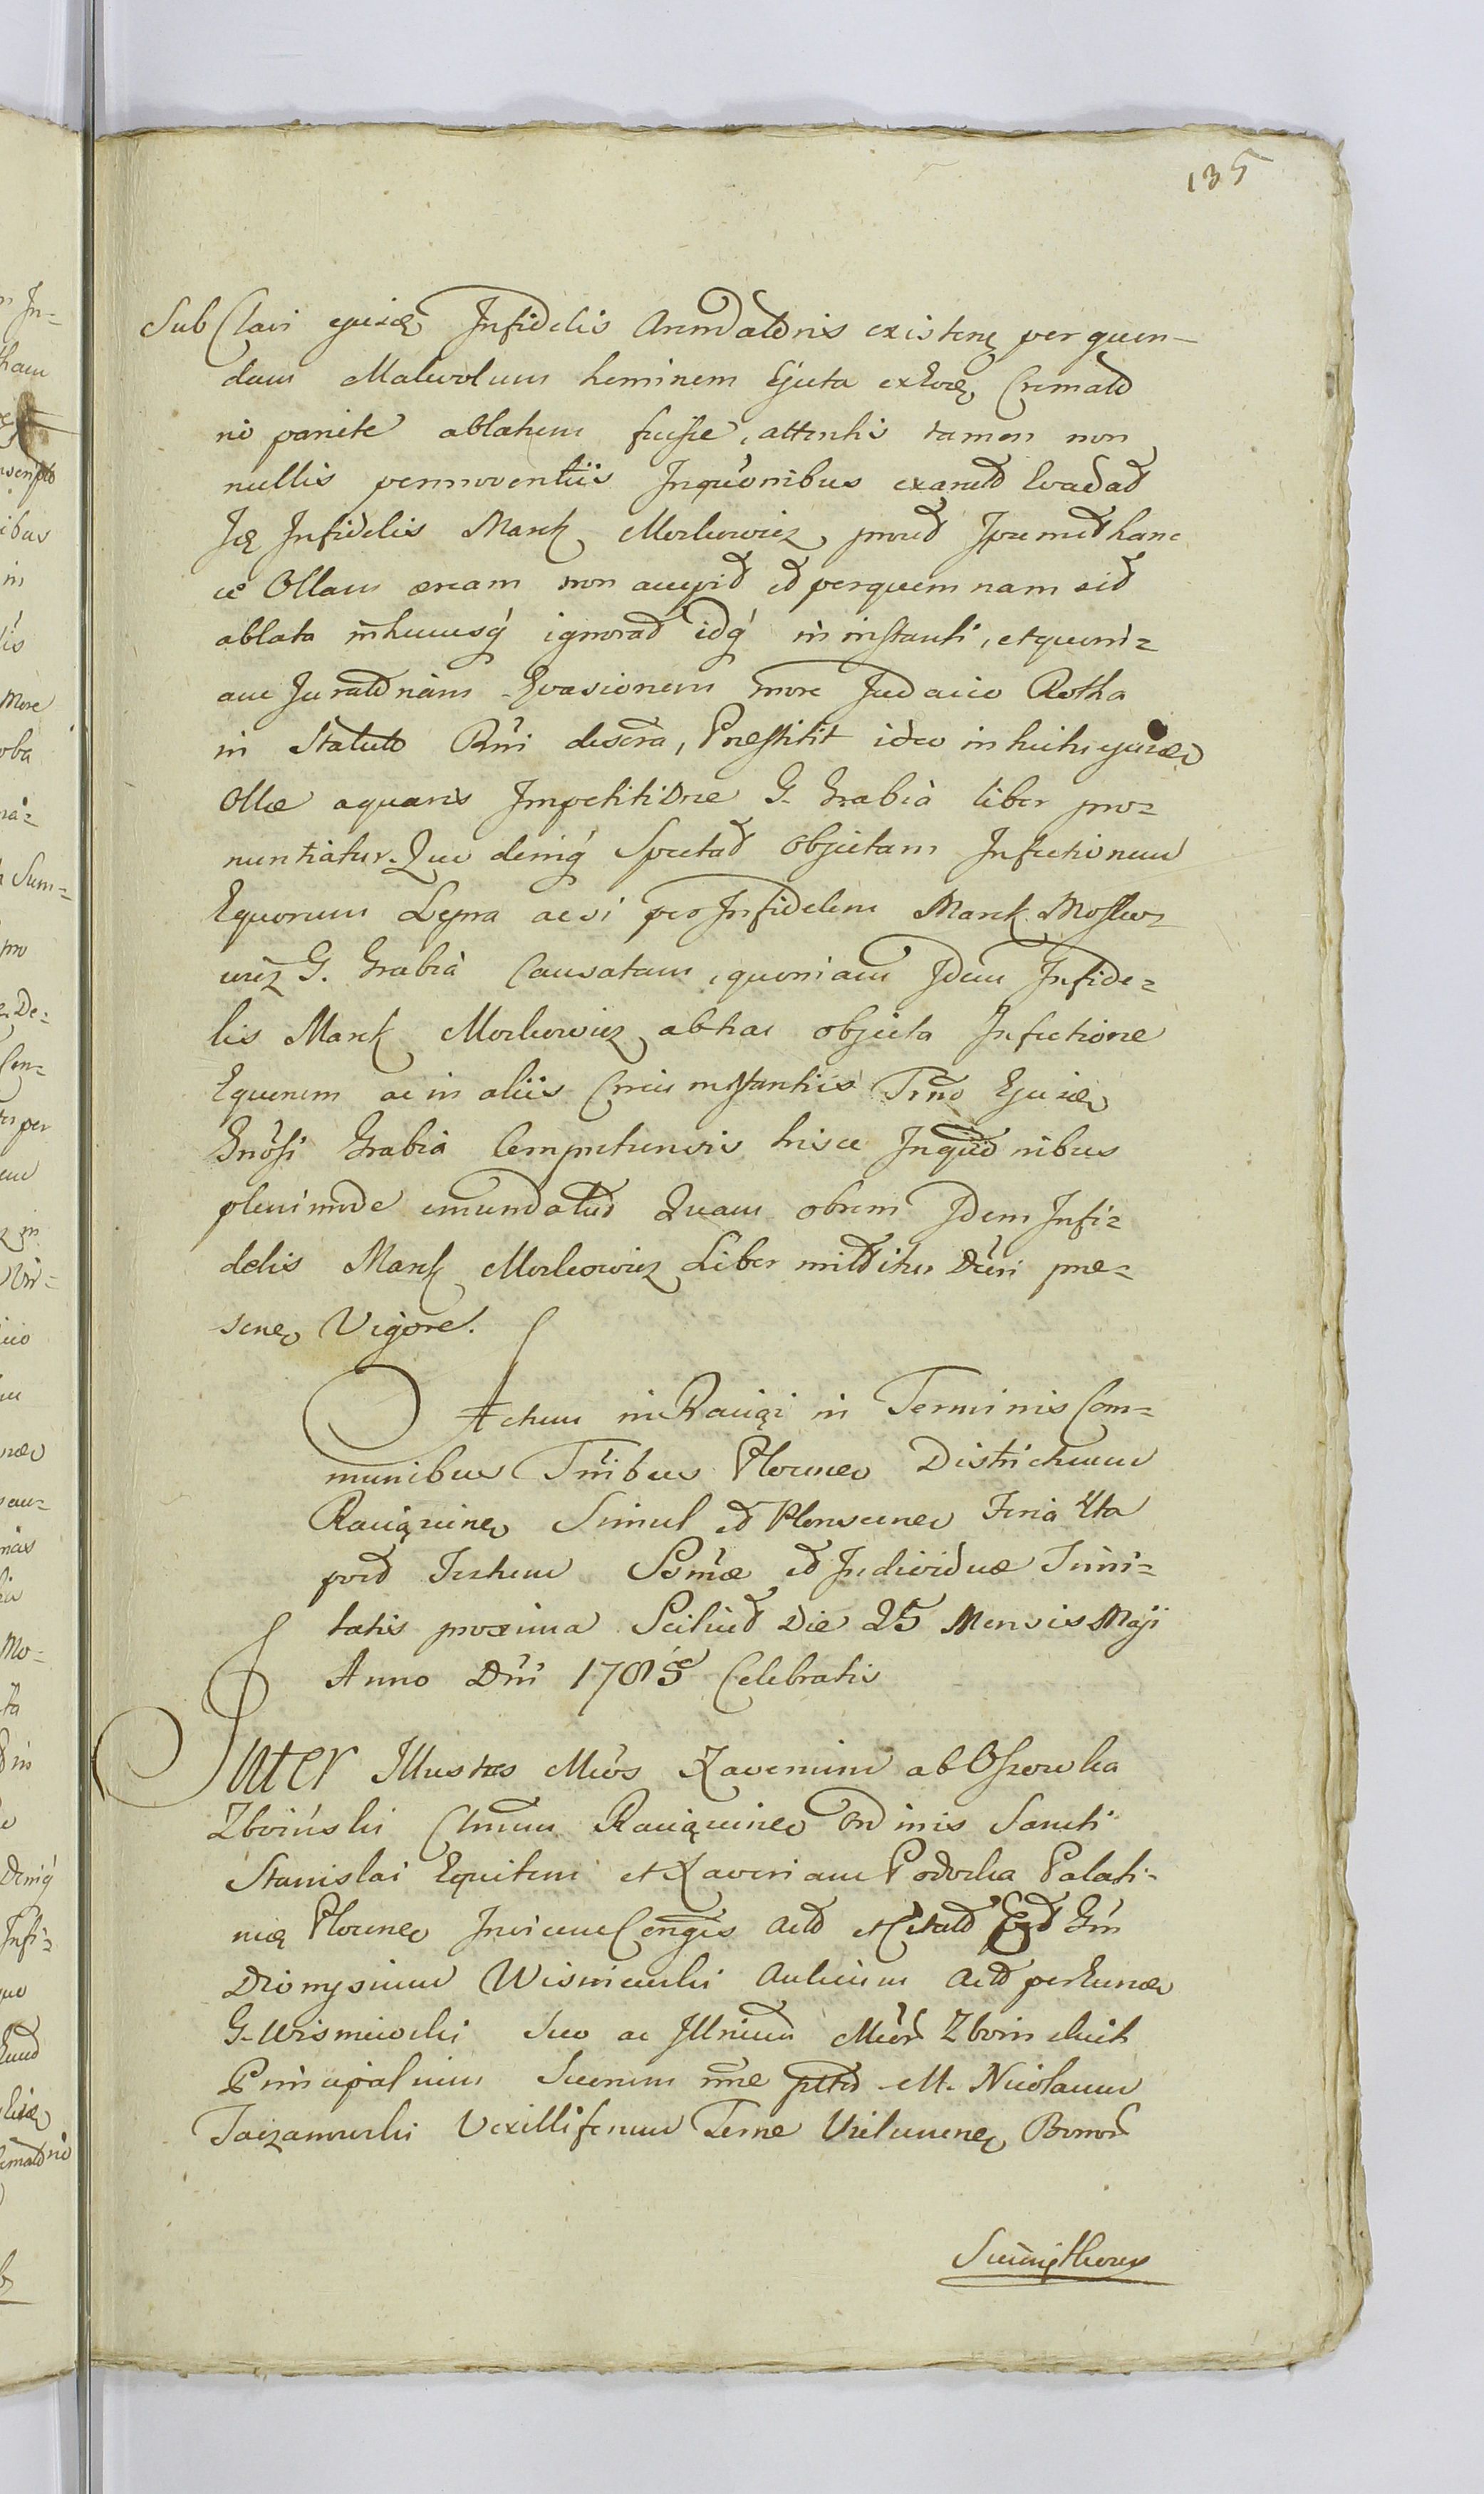 135
Sub Clavi ejusd Infidelis Arendatoris existens per quen-
dam Malevolum hominem Ejecta ex Cremato
rio pariete ablatam fuisse, attentis tamen non
nullis permoventiis Inquonibus exacto Evadat
Infidelis Marek Morkowicz, prout Ipsemet hanc
ce Ollam æream non accepit et per quemnam sit
ablata inhucusq ignorat idq in instanti, et quoni=
am Juratoriam Evasionem more Judaico Rotha
in Statuto Rni descra, Præstitit ideo in huitu ejusd
Ollæ aquaris Impetitione G. Grabia liber pro=
nuntiatur. Quo deniq Spectat Objectam Infectionem
Equorum Lepra ac si per Infidelem Marek Moszko=
wicz G. Grabia Causatam, quoniam Idem Infide=
lis Marek Morkowicz, ab hac objecta Infectione
Equorum ac in aliis Circumstantiis Trno Ejusd
Gnosi Grabia Comprehensis hisce Inquonibus
plenimode emundatus Quam obrem Idem Infi=
delis Marek Morkowicz Liber mittitur Dcti præ=
sent Vigore.
Actum in Raciąż in Terminis Com=
munibus Trribus Plocen Districtuum
Raciązinen Simul et Plonscen Feria 4ta
post Festum Ssmæ et Individuæ Trini=
tatis proxima Scilicet Die 25 Mensis Maji
Anno Dni 1785 Celebratis
Inter Illustres Mcos Xaverium ab Ossowka
Zboiński Cnum Raciązinen Ordinis Sancti
Stanislai Equitem et Xaveriam Podoska Palati-
nid Plocen Invicem Conges Act et Citat Gn
Dionysium Wisniewski Aulicum Act per Eund
G. Wisniewski Suo ac Illrium Mcor Zboinskich
Principalium Suorum nne M. Nicolaum
Jaczanowski Vexilliferum Terræ Bonor